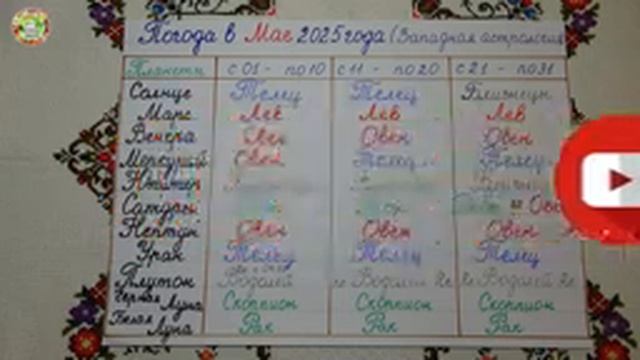 Погода в Мае 2025 года (Западная астрология
Планеты с 01 - по 10 с 11 - по 20 с 21 - по 31
Солнце Телец Телец Близнецы
Марс Лев Лев Лев
Венера Овен Овен Овен
Меркурий Овен Телец Телец
Юпитер
Сатурн Овен
Нептун Овен Овен Овен
Уран Телец Телец Телец
Плутон Водолей Водолей Водолей
Черная Луна Скорпион Скорпион Скорпион
Белая Луна Рак Рак Рак